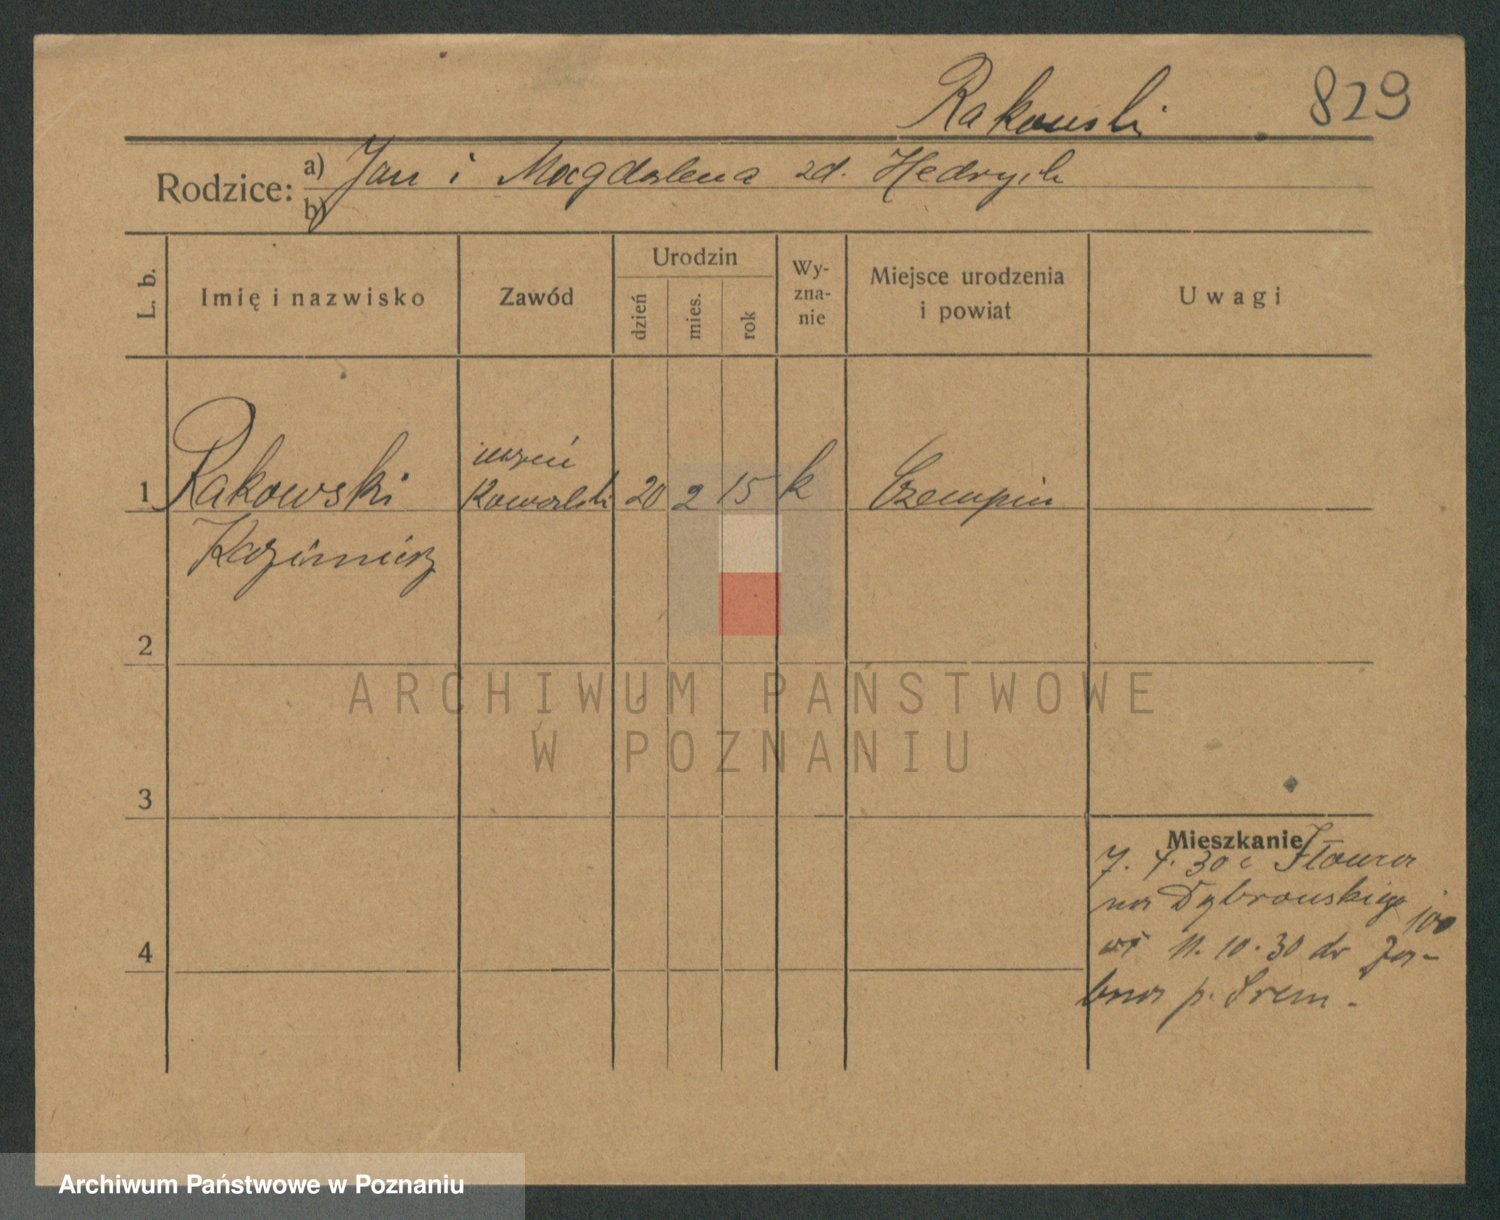 Rakowski 829
Rodzice: a) Jan i Magdalena zd. Hedrych
b)
L. b. Imię i nazwisko Zawód Urodzin dzień mies. rok Wy-zna-nie Miejsce urodzenia i powiat Uwagi
1 Rakowski uczeń kowalski 20 2 15 k Czempin
Kazimierz
2
ARCHIWUM PAŃSTWOWE
W POZNANIU
3
Mieszkanie
7. 4. 30 z
na Dąbrowskiego 100
11. 10. 30 do Ja-
bna p. Śrem.
4
Archiwum Państwowe w Poznaniu